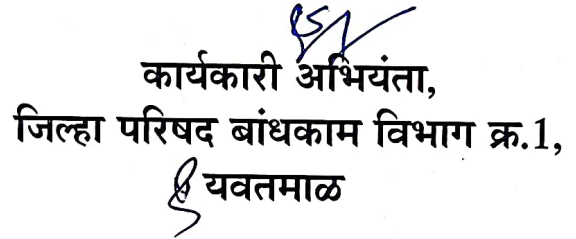 कार्यकारी अभियंता,
जिल्हा परिषद बांधकाम विभाग क्र.1,
यवतमाळ